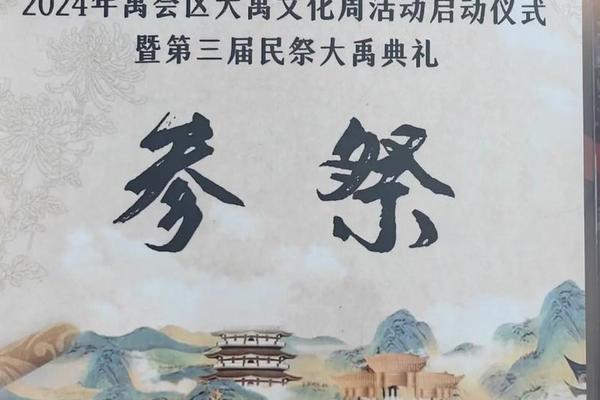 2024年禹会区大禹文化周活动启动仪式
暨第三届民祭大禹典礼
参祭